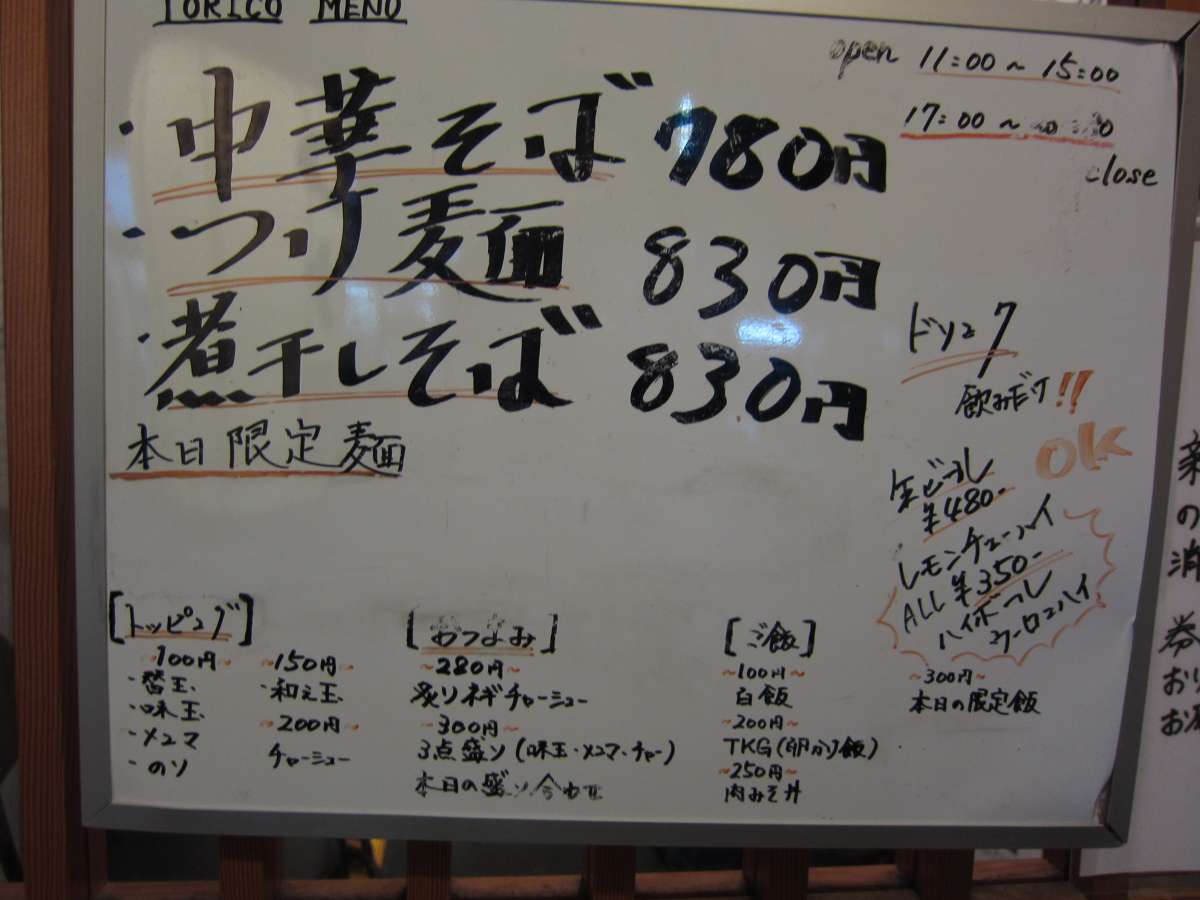 TORICO MENU
open 11:00~15:00
17:00~
close
・中華そば 780円
・つけ麺 830円
・煮干しそば 830円
本日限定麺
ドリンク
飲みだけ!!
OK
生ビール
¥480-
レモンチューハイ
ALL ¥350-
ハイボール
ウーロンハイ
[トッピング]
~100円~
・替玉
・味玉
・メンマ
・のり
~150円~
・和え玉
~200円~
チャーシュー
[おつまみ]
~280円~
炙りネギチャーシュー
~300円~
3点盛り(味玉・メンマ・チャー)
本日の盛り合わせ
[ご飯]
~100円~
白飯
~200円~
TKG(卵かけ飯)
~250円~
肉みそ丼
~300円~
本日の限定飯
の
券